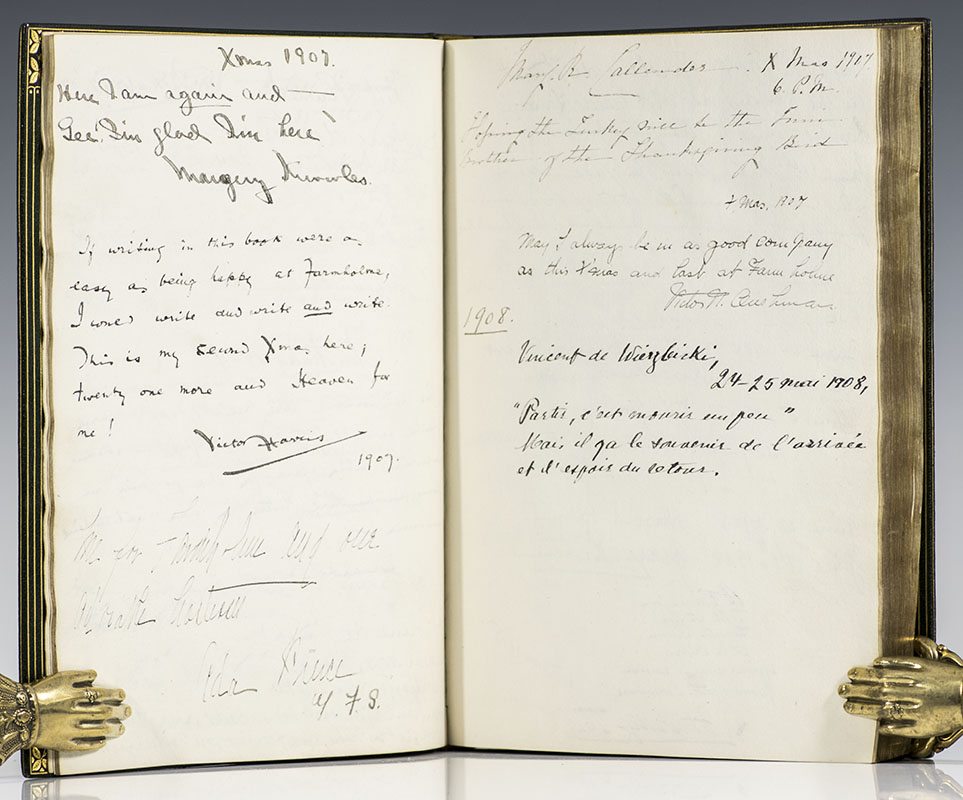 Xmas 1907.
Here I am again and —
Gee! I'm glad I'm here!
Margery Knowles.
If writing in this book were as
easy as being happy at Farmholme,
I would write and write and write.
This is my second Xmas here;
twenty one more and Heaven for
me!
Victor Harris
1907.
for and our
Mary R. Callender. X Mas 1907
6. P.M.
Hoping the Turkey will be the
brother of the Thanksgiving Bird
X Mas, 1907
May I always be in as good company
as this X'mas and last at Farm holme
Cushman
1908.
Vincent de Wierzbicki,
24-25 mai 1908,
"Partir, c'est mourir un peu"
Mais il y a le souvenir de l'arrivée
et l'espoir du retour.